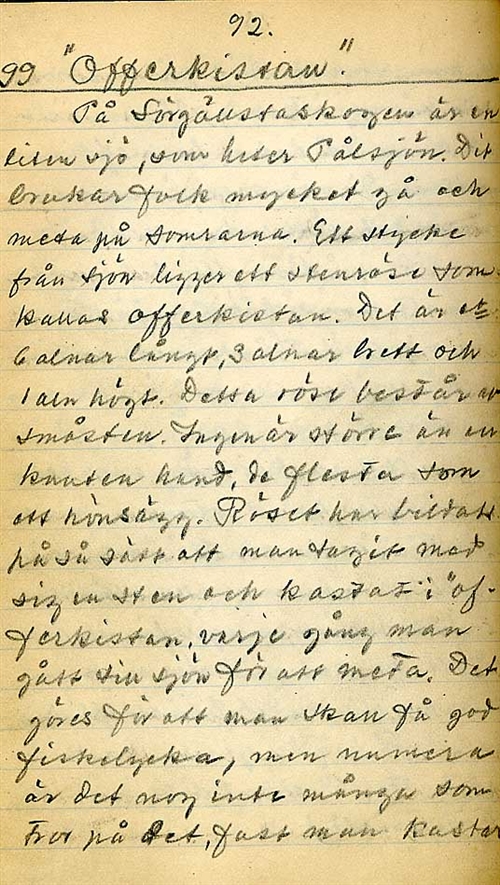 92.
99 "Offerkistan".
På Sörgällstaskogen är en
liten sjö, som heter Pålsjön. Dit
brukar folk mycket gå och
meta på somrarna. Ett stycke
från sjön ligger ett stenröse som
kallas offerkistan. Det är
6 alnar långt, 3 alnar brett och
1 aln högt. Detta röse består av
småsten. Ingen är större än en
knuten hand, de flesta som
ett hönsägg. Röset har bildats
på så sätt att man tagit med
sig en sten och kastat i "of-
ferkistan, varje gång man
gått till sjön för att meta. Det
göres för att man skall få god
fiskelycka, men numera
är det nog inte många som
tror på det, fast man kastar